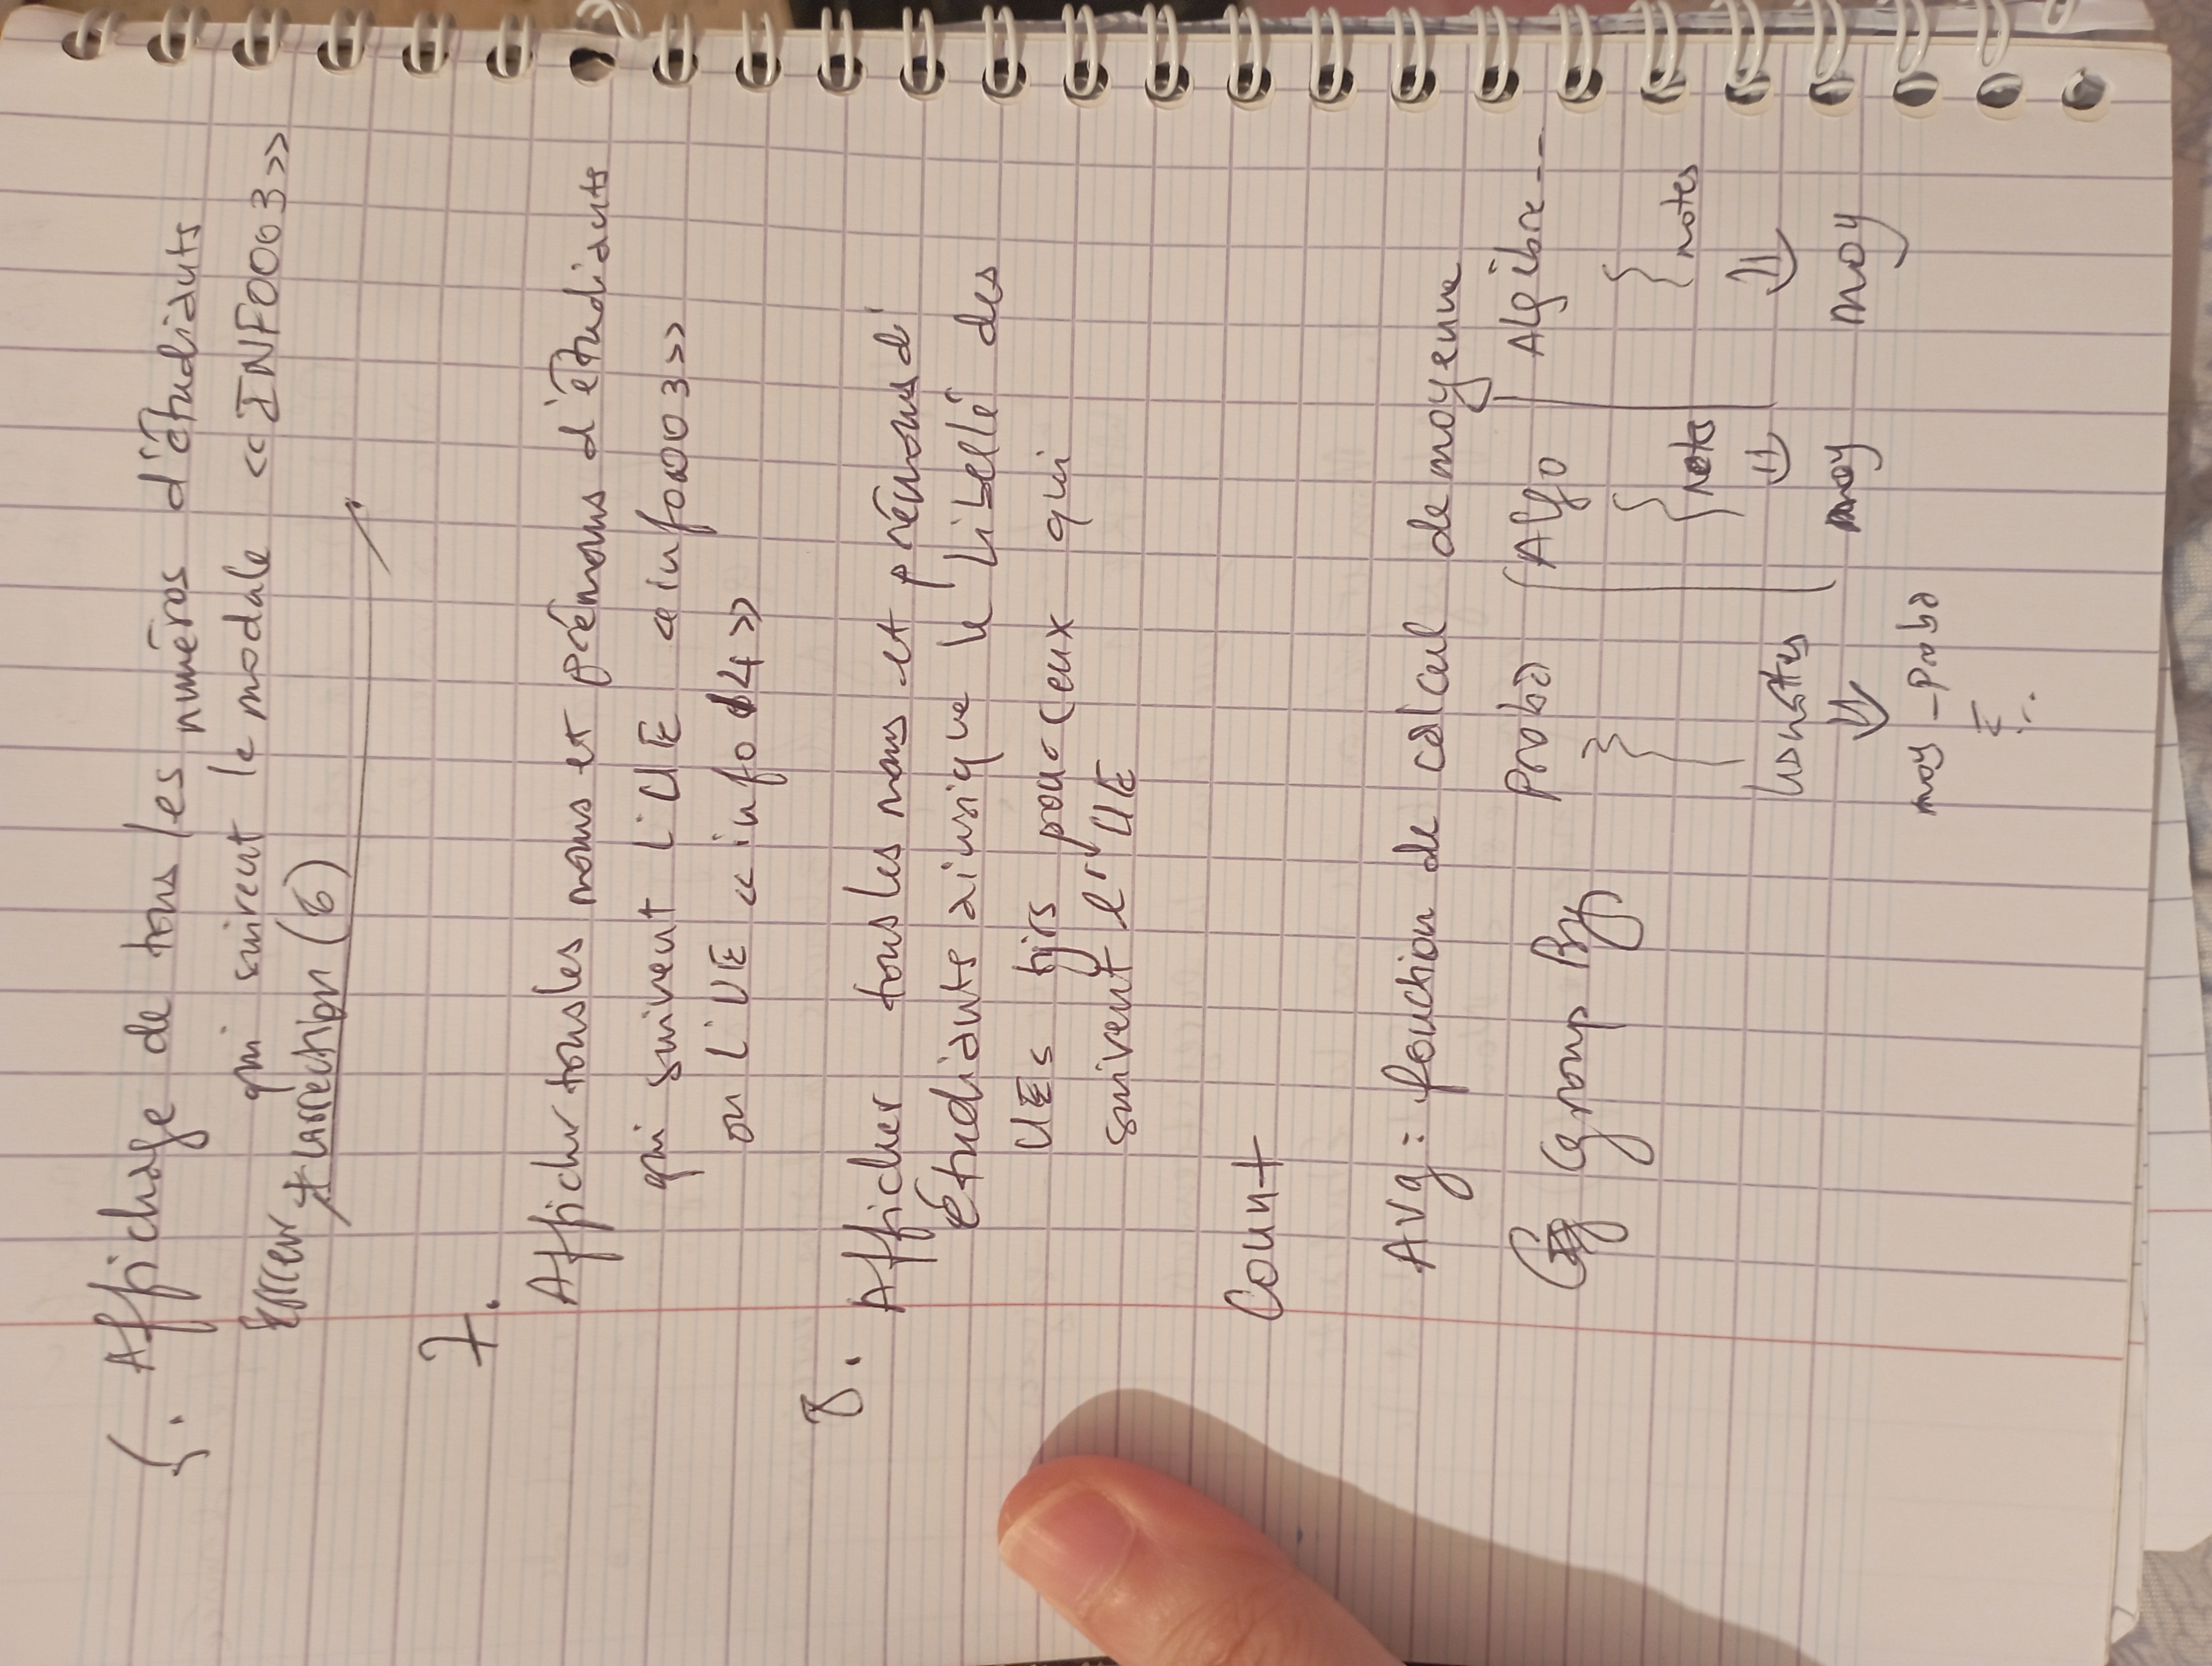 5. Affichage de tous les numéros d'étudiants
qui suivent le modale «INFO003»
Erreur + correction (6)
7.
Afficher tous les noms et prénoms d'étudiants
qui suivent l'UE «info0003»
ou l'UE «info14»
8.
Afficher tous les noms et prénoms d'
étudiants ainsi que le libellé des
UEs tjrs pour ceux qui
suivent l'UE
Count
Avg : fonction de calcul de moyenne
Group By Proba Algo Algèbre --
notes notes
les notes
moy moy
moy_proba